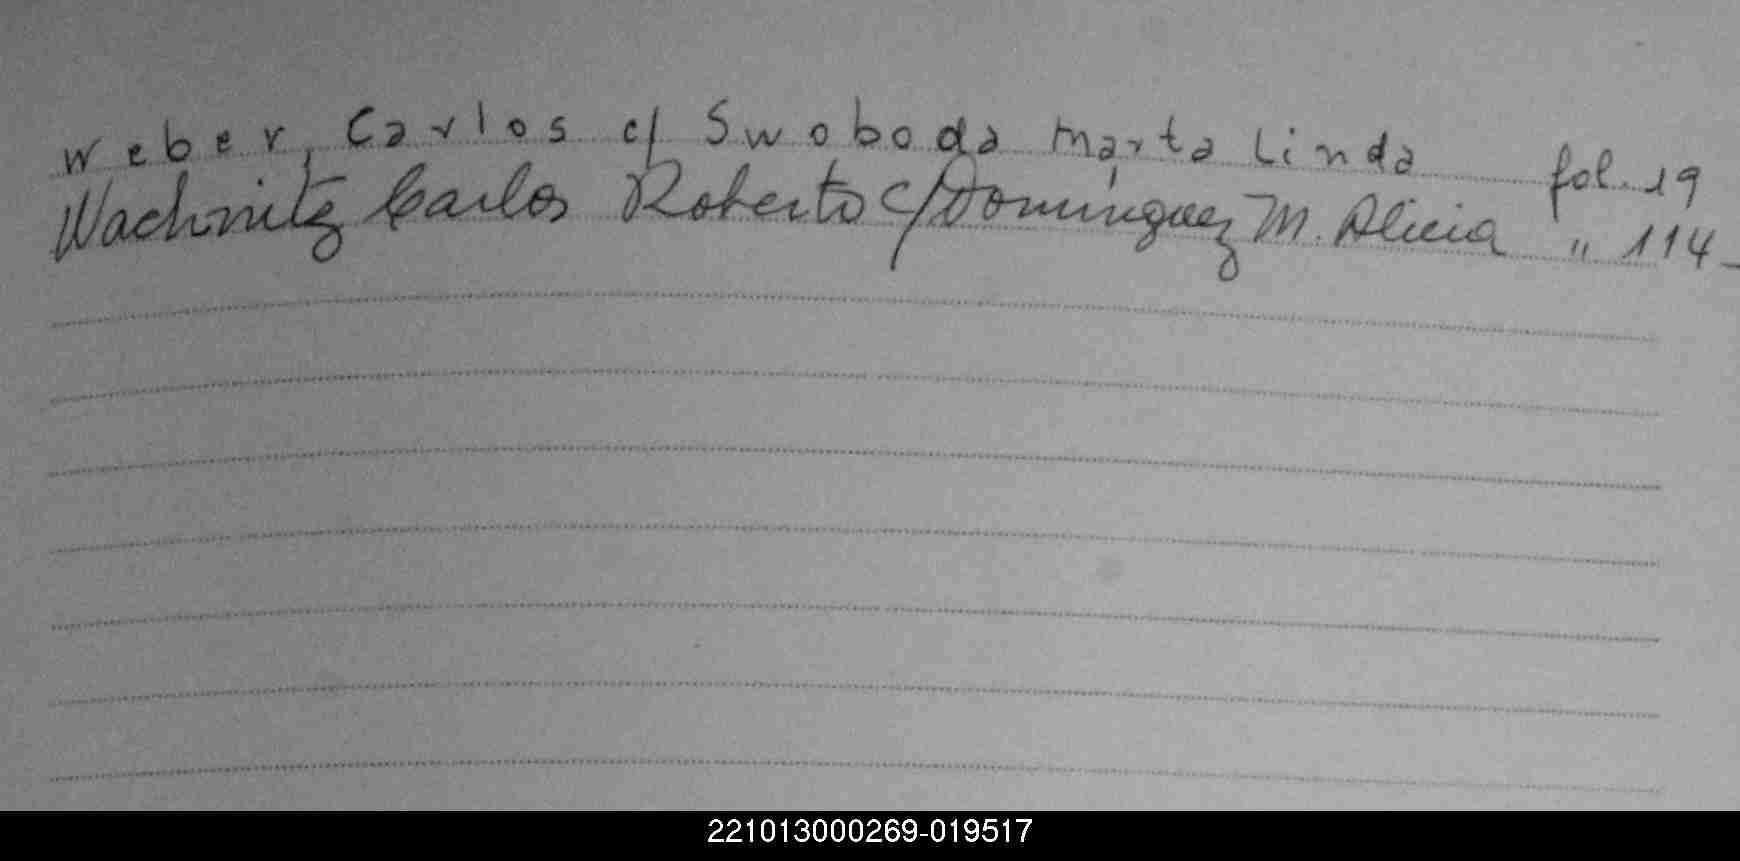 Weber, Carlos c/ Swoboda Marta Linda fol. 19
Wachnitz Carlos Roberto c/ Domínguez M. Alicia " 114-
221013000269-019517